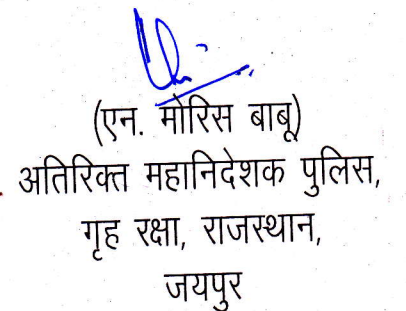 (एन. मोरिस बाबू)
अतिरिक्त महानिदेशक पुलिस,
गृह रक्षा, राजस्थान,
जयपुर